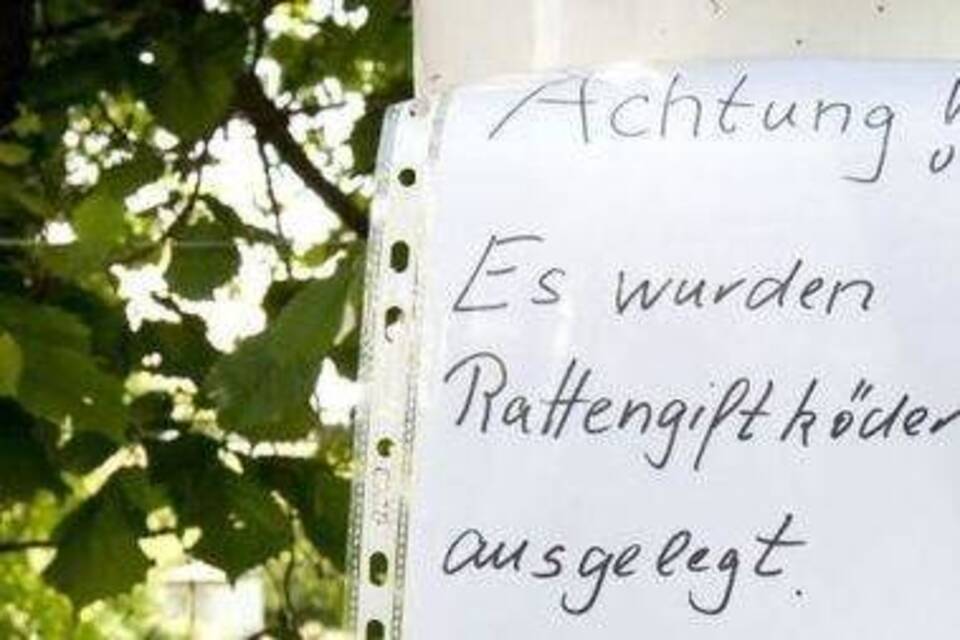 Achtung
Es wurden
Rattengiftköder
ausgelegt.